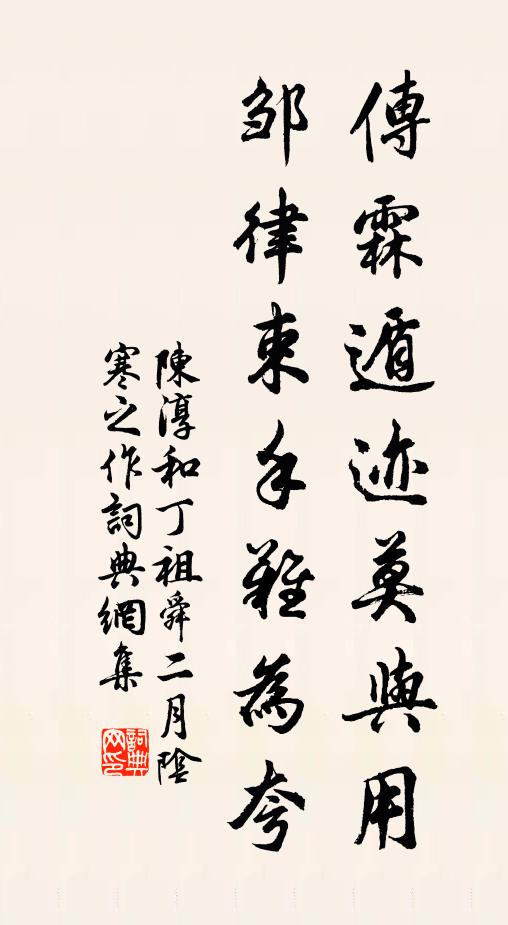 傅霖遁迹莫與用
邹律束手難為夸
陳淳和丁祖舜二月陰
寒之作詞典網集
詞典
网印